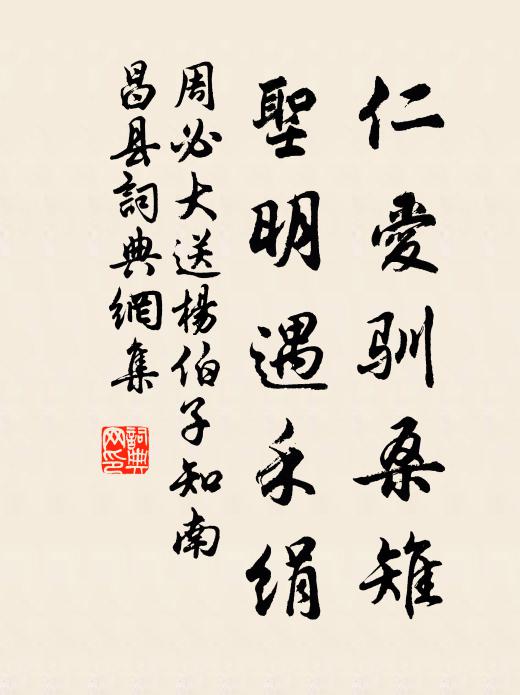 仁愛馴桑雉
聖明遇禾絹
周必大送楊伯子知南
昌县詞典網集
詞典網印